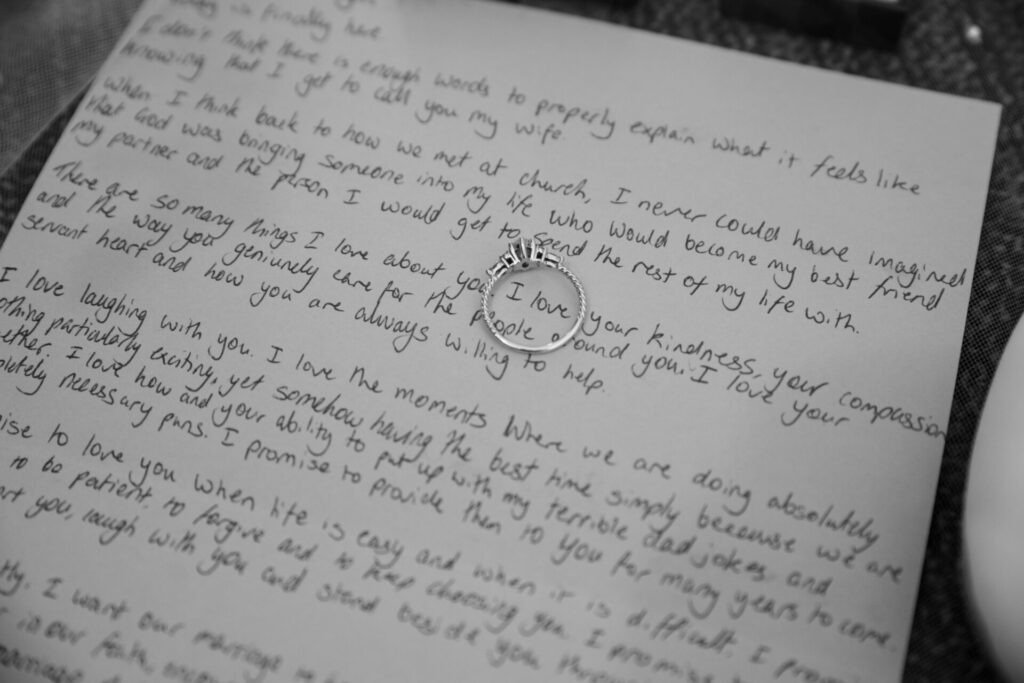 is finally here
I don't think there is enough words to properly explain what it feels like
knowing that I get to call you my wife.
When I think back to how we met at church, I never could have imagined
that God was bringing someone into my life who would become my best friend
my partner and the person I would get to spend the rest of my life with.
There are so many things I love about you. I love your kindness, your compassion
and the way you geniunely care for the people around you. I love your
servant heart and how you are always willing to help.
I love laughing with you. I love the moments Where we are doing absolutely
nothing particularly exciting, yet somehow having the best time simply because we are
together. I love how and your ability to put up with my terrible dad jokes and
necessary puns. I promise to provide them to you for many years to come.
to love you when life is easy and when it is difficult. I
to be patient, to forgive and to keep choosing you. I promise
you, laugh with you and stand beside you
I want our marriage
in our faith,
marriage